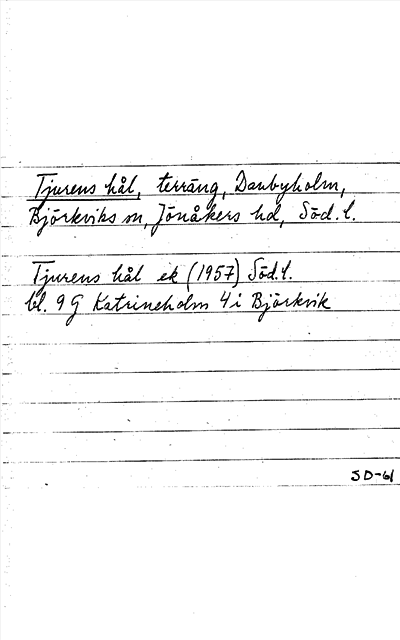 Tjurens hål, terräng, Danbyholm,
Björkviks sn, Jönåkers hd, Söd. l.
Tjurens hål ek (1957) Söd. l.
bl. 9 G Katrineholm 4 i Björkvik
SD-61